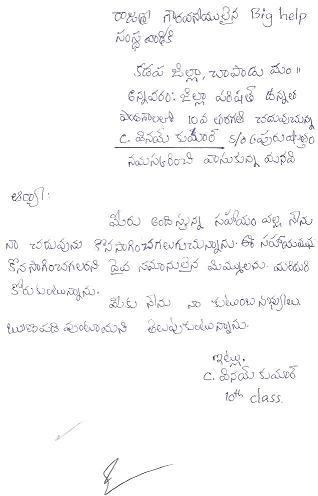 రాజశ్రీ గౌరవనీయులైన Big help
సంస్థ వారికి
కడప జిల్లా, చాపాడు మం॥
అన్నవరం: జిల్లా పరిషత్ ఉన్నత
పాఠశాలలో 10వ తరగతి చదువుచున్న
C. వినయ్ కుమార్ S/o
నమస్కరించి వ్రాసుకున్న మనవి
ఆర్యా:
మీరు అందిస్తున్న సహాయం వల్ల నేను
నా చదువును కొనసాగించగలుగుచున్నాను. ఈ సహాయమును
కొనసాగించగలరని దైవ సమానులైన మిమ్ములను
కోరుకుంటున్నాను.
మీకు నేను నా కుటుంబ సభ్యులు
ఋణపడి వుంటామని తెలుపుకుంటున్నాను.
ఇట్లు,
C. వినయ్ కుమార్
10th class.